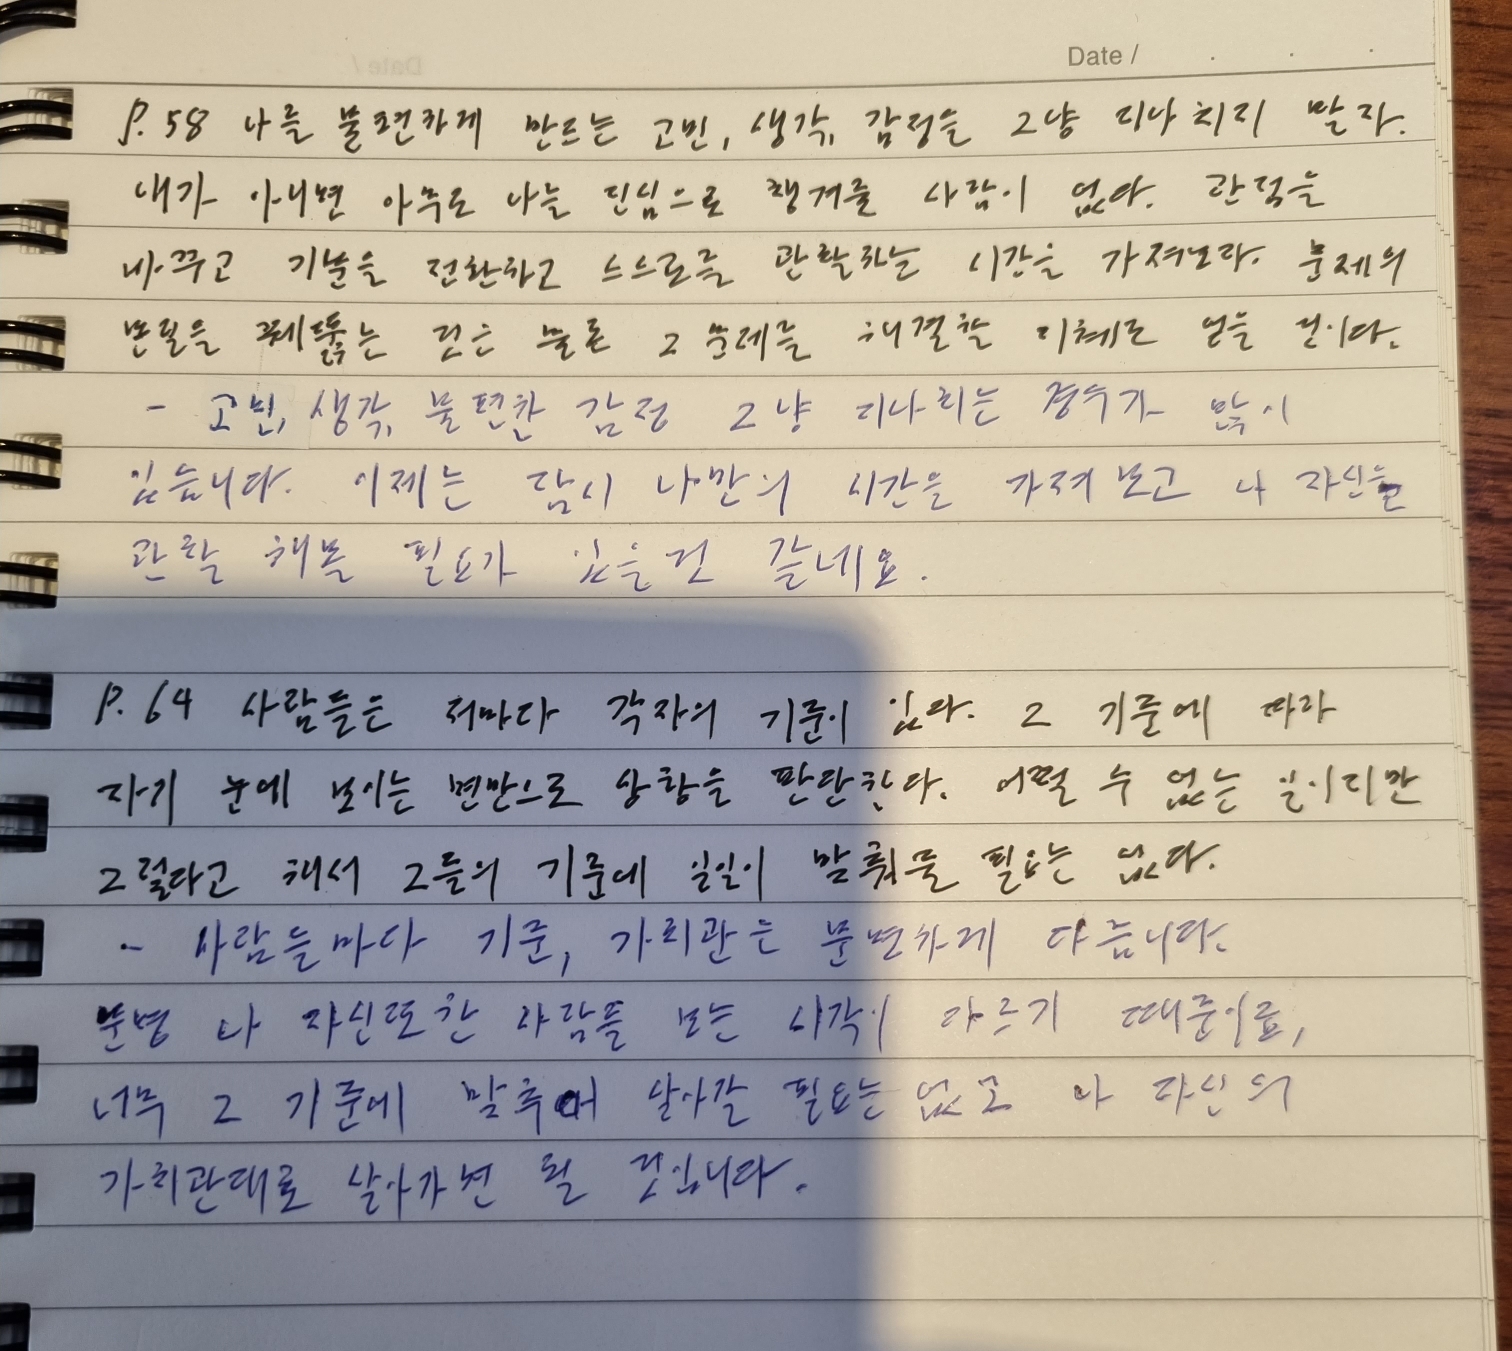 Date /
P. 58 나를 불편하게 만드는 고민, 생각, 감정을 그냥 지나치지 말자.
내가 아니면 아무도 나를 진심으로 챙겨줄 사람이 없다. 관점을
바꾸고 기분을 전환하고 스스로를 관찰하는 시간을 가져보라. 문제의
본질을 꿰뚫는 것은 물론 그 문제를 해결할 지혜도 얻을 것이다.
- 고민, 생각, 불편한 감정 그냥 지나치는 경우가 많이
있습니다. 이제는 잠시 나만의 시간을 가져보고 나 자신을
관찰 해볼 필요가 있을것 같네요.
P. 64 사람들은 저마다 각자의 기준이 있다. 그 기준에 따라
자기 눈에 보이는 면만으로 상황을 판단한다. 어쩔 수 없는 일이지만
그렇다고 해서 그들의 기준에 일일이 맞춰줄 필요는 없다.
- 사람들마다 기준, 가치관은 분명하게 다릅니다.
분명 나 자신또한 사람들 보는 시각이 다르기 때문이죠,
너무 그 기준에 맞추어 살아갈 필요는 없고 나 자신의
가치관대로 살아가면 될 것입니다.